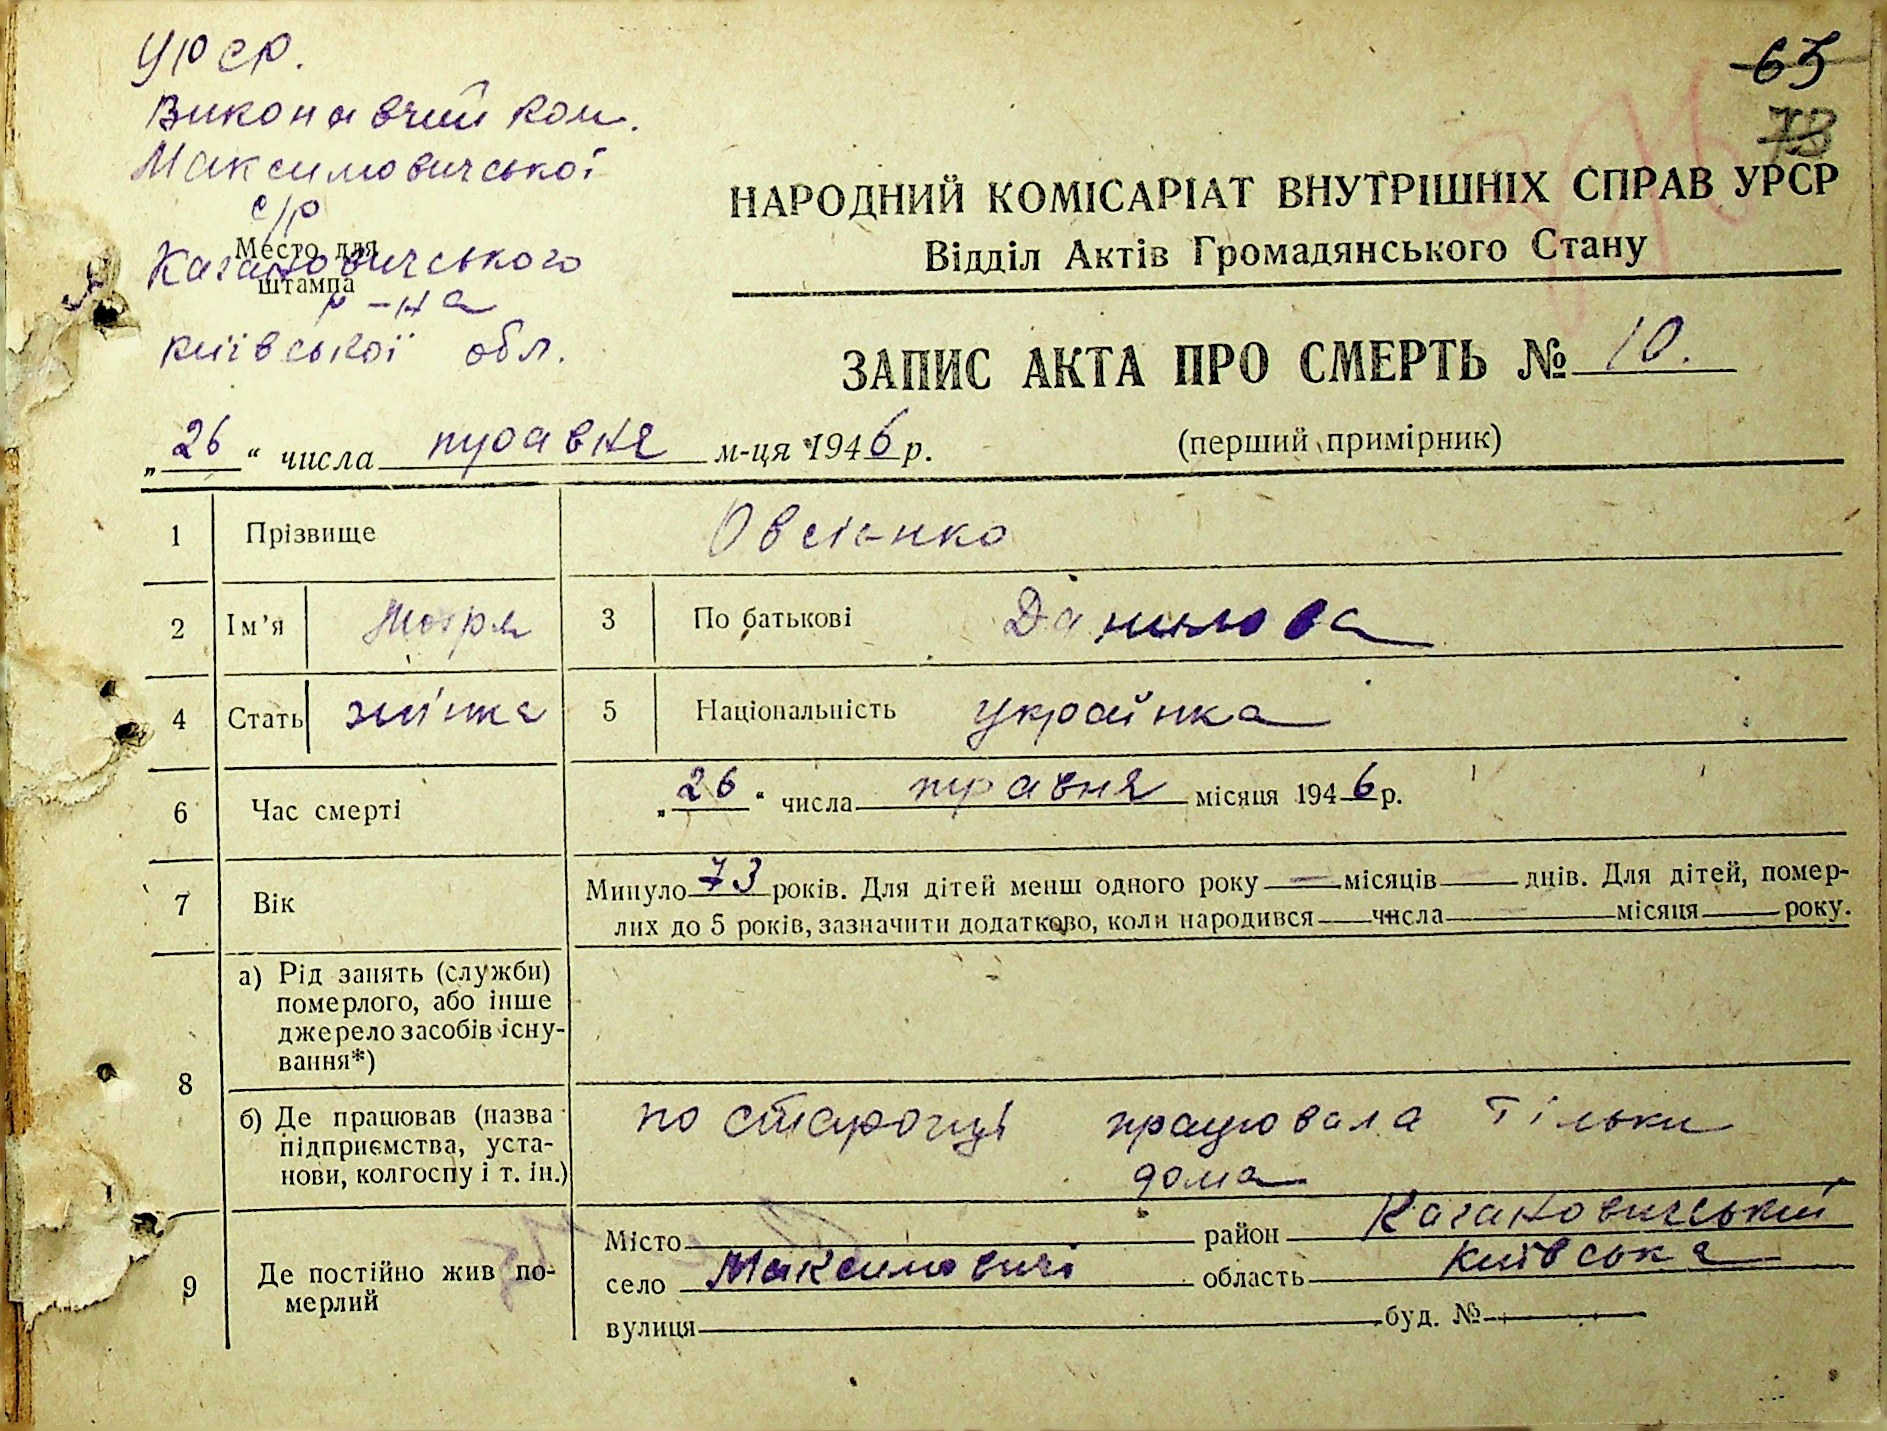 УРСР.
Виконавчий Ком.
Максимовичської
с/р
Место для
Кагановичського
штампа
р-на
київської обл.
65
73
НАРОДНИЙ КОМІСАРІАТ ВНУТРІШНІХ СПРАВ УРСР
Відділ Актів Громадянського Стану
ЗАПИС АКТА ПРО СМЕРТЬ № 10.
„26“ числа травня м-ця 1946 р.
(перший примірник)
1 Прізвище Овсієнко
2 Ім'я Мотря 3 По батькові Данилова
4 Стать жінка 5 Національність українка
6 Час смерті „26“ числа травня місяця 1946 р.
7 Вік Минуло 73 років. Для дітей менш одного року — місяців — днів. Для дітей, помер-
лих до 5 років, зазначити додатково, коли народився — числа — місяця — року.
8 а) Рід занять (служби)
померлого, або інше
джерело засобів існу-
вання*)
б) Де працював (назва
підприємства, уста-
нови, колгоспу і т. ін.)
по старочці працювала тільки
дома
9 Де постійно жив по-
мерлий
Місто — район Кагановичський
село Максимовичі область Київська
вулиця — буд. № —